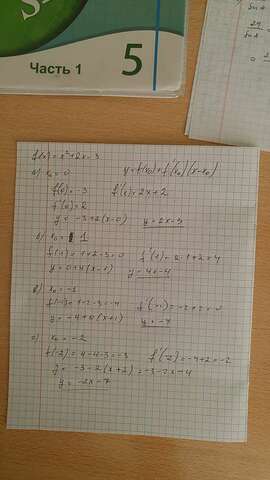 Часть 1
5
f(x) = x²+2x-3
а) x₀ = 0 y = f(x₀)+f'(x₀)(x-x₀)
f(0) = -3 f'(x) = 2x+2
f'(0) = 2
y = -3+2(x-0) y = 2x-3
б) x₀ = 1
f(1) = 1+2-3 = 0 f'(1) = 2·1+2 = 4
y = 0+4(x-1) y = 4x-4
в) x₀ = -1
f(-1) = 1-2-3 = -4 f'(-1) = -2+2 = 0
y = -4+0(x+1)
г) x₀ = -2
f(-2) = 4-4-3 = -3 f'(-2) = -4+2 = -2
y = -3-2(x+2) = -3-2x-4
y = -2x-7